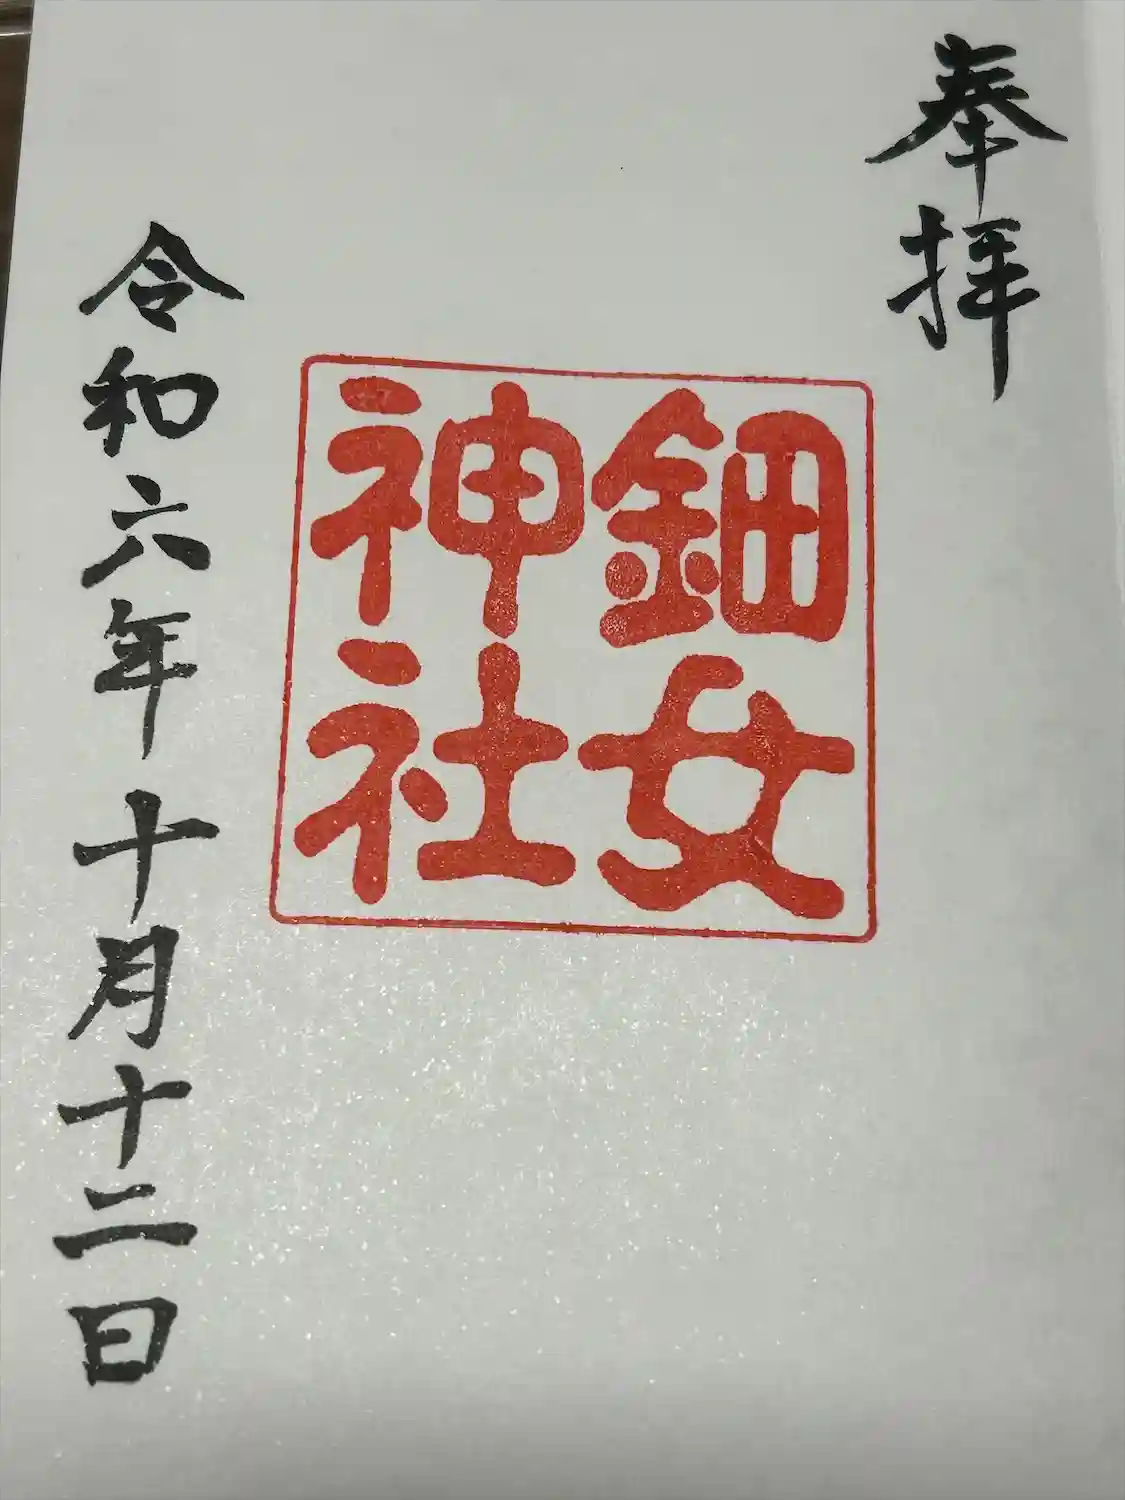 奉拝
鈿女
神社
令和六年十月十二日